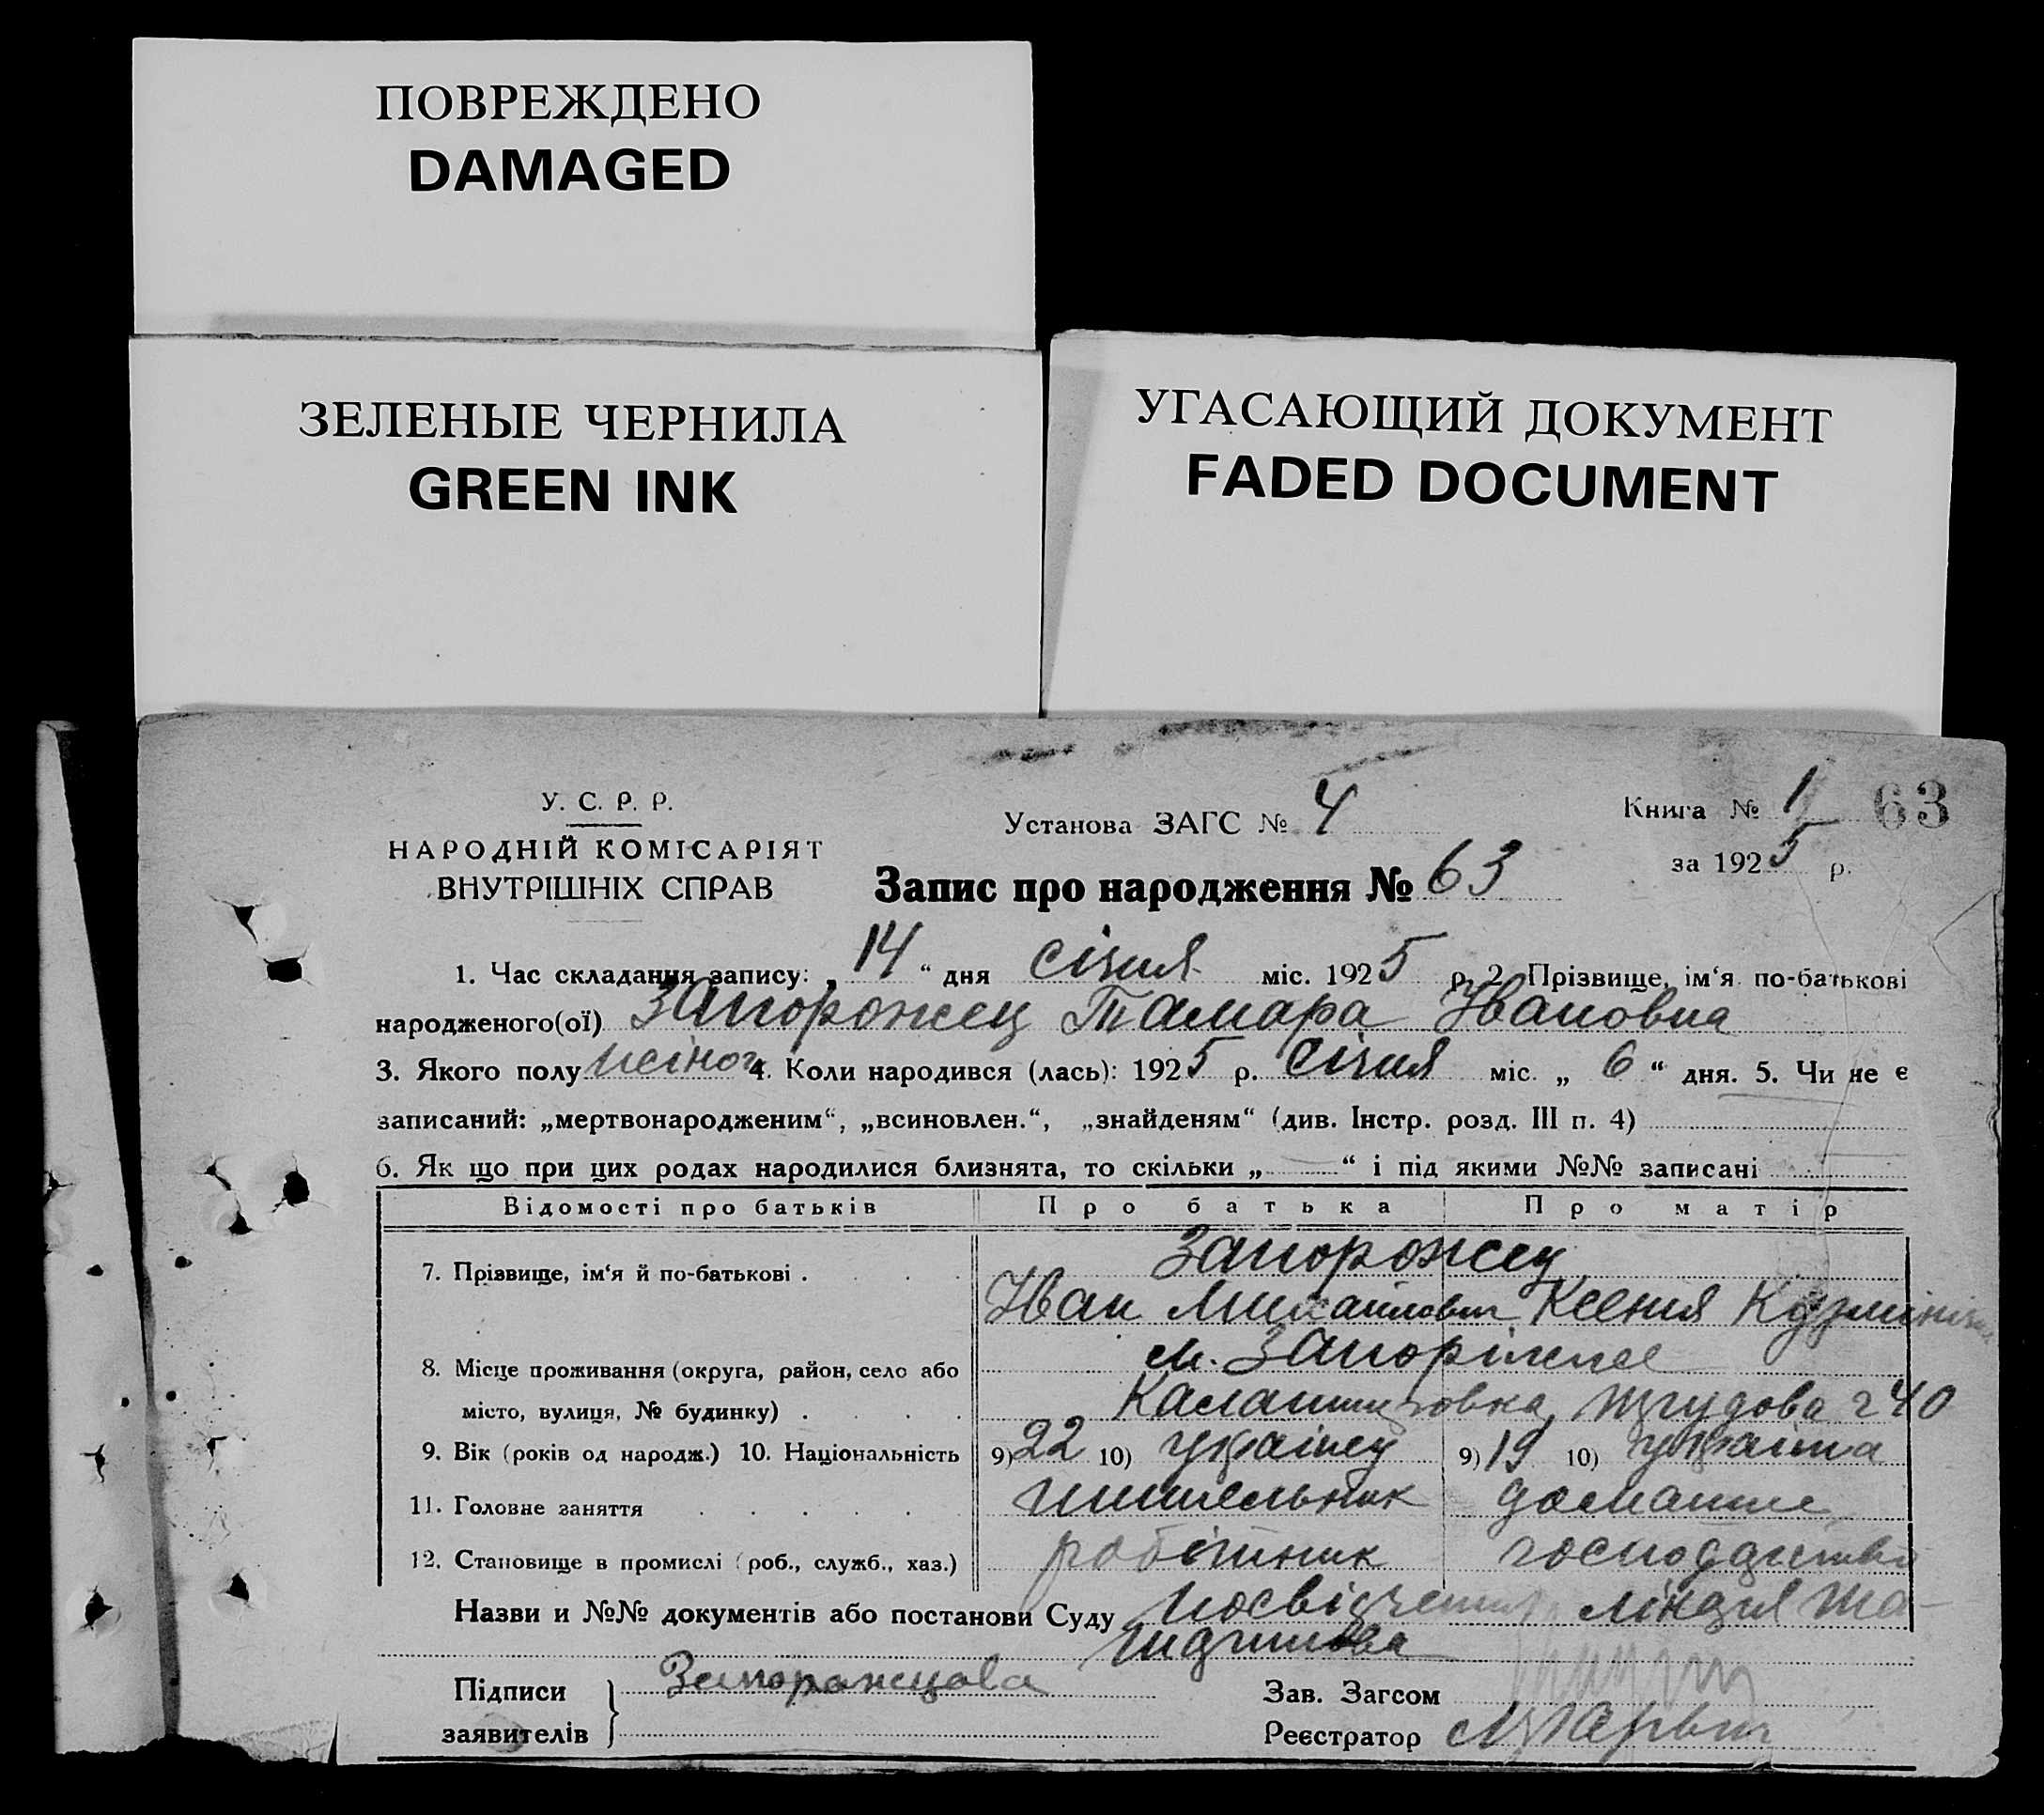 ПОВРЕЖДЕНО
DAMAGED
ЗЕЛЕНЫЕ ЧЕРНИЛА
GREEN INK
УГАСАЮЩИЙ ДОКУМЕНТ
FADED DOCUMENT
У. С. Р. Р.
НАРОДНІЙ КОМІСАРІЯТ
ВНУТРІШНІХ СПРАВ
Установа ЗАГС № 4
Запис про народження № 63
Книга № 1 63
за 1925 р.
1. Час складання запису: „ 14 “ дня січня міс. 1925 р. 2. Прізвище, ім‘я по-батькові
народженого(ої) Запорожец Тамара Ивановна
3. Якого полу жіноч 4. Коли народився (лась): 1925 р. січня міс. „ 6 “ дня. 5. Чи не є
записаний: „мертвонародженим“, „всиновлен.“, „знайденям“ (див. Інстр. розд. III п. 4)
6. Як що при цих родах народилися близнята, то скільки „ — “ і під якими №№ записані
Відомості про батьків Про батька Про матір
7. Прізвище, ім‘я й по-батькові . . . . Запорожец
Иван Михайлович Ксения
8. Місце проживання (округа, район, село або м. Запоріжже
місто, вулиця, № будинку) . . . . 40
9. Вік (років од народж.) 10. Національність 9) 22 10) українец 9) 19 10) українка
11. Головне заняття . . . . . . домашне
12. Становище в промислі (роб., служб., хаз.) робітник господарство
Назви и №№ документів або постанови Суду посвідчення
Підписи Запорожцова Зав. Загсом
заявителів Реєстратор